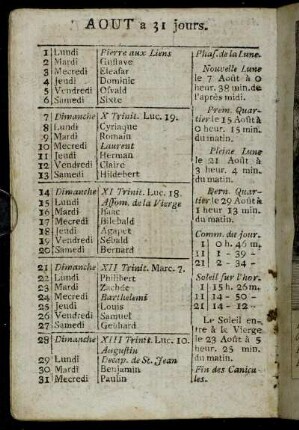 AOUT a 31 jours.
1 Lundi Pierre aux Liens
2 Mardi Gustave
3 Mecredi Eleasar
4 Jeudi Dominic
5 Vendredi Osvald
6 Samedi Sixte
7 Dimanche X Trinit. Luc. 19.
8 Lundi Cyriaque
9 Mardi Romain
10 Mecredi Laurent
11 Jeudi Herman
12 Vendredi Claire
13 Samedi Hildebert
14 Dimanche XI Trinit. Luc. 18.
15 Lundi Assom. de la Vierge
16 Mardi Isaac
17 Mecredi Bilebald
18 Jeudi Agapet
19 Vendredi Sébald
20 Samedi Bernard
21 Dimanche XII Trinit. Marc. 7.
22 Lundi Philibert
23 Mardi Zachée
24 Mecredi Barthelemi
25 Jeudi Louis
26 Vendredi Samuel
27 Samedi Gebhard
28 Dimanche XIII Trinit. Luc. 10.
Augustin
29 Lundi Decap. de St. Jean
30 Mardi Benjamin
31 Mecredi Paulin
Phas. de la Lune.
Nouvelle Lune
le 7 Août à 0
heur. 38 min. de
l'après midi.
Prem. Quar-
tier le 15 Août à
0 heur. 15 min.
du matin.
Pleine Lune
le 21 Août à
3 heur. 4 min.
du matin.
Dern. Quar-
tier le 29 Août à
1 heur 13 min.
du matin.
Comm. du jour.
1 | 0 h. 46 m.
11 | 1 - 39 -
21 | 2 - 34 -
Soleil sur l'hor.
1 | 15 h. 26 m.
11 | 14 - 50 -
21 | 14 - 12 -
Le Soleil en-
tre à la Vierge
le 23 Août à 5
heur. 25 min.
du matin.
Fin des Canicu-
les.